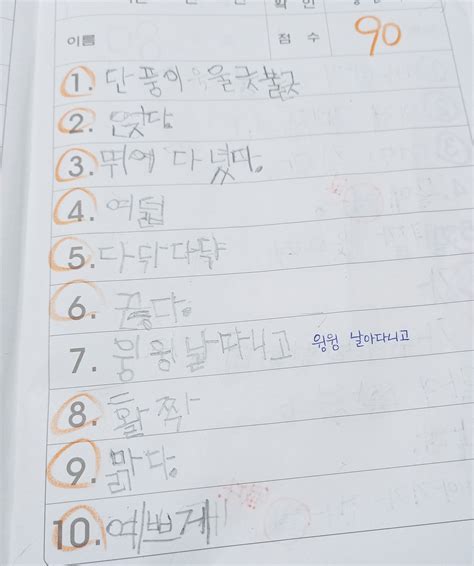 확 인
이름 점 수 90
1. 단풍이 울긋불긋
2.
3. 뛰어 다녔다.
4. 여덟
5. 다닥다닥
6. 끓다.
7. 윙윙날다니고 윙윙 날아다니고
8. 활짝
9. 맑다.
10. 예쁘게